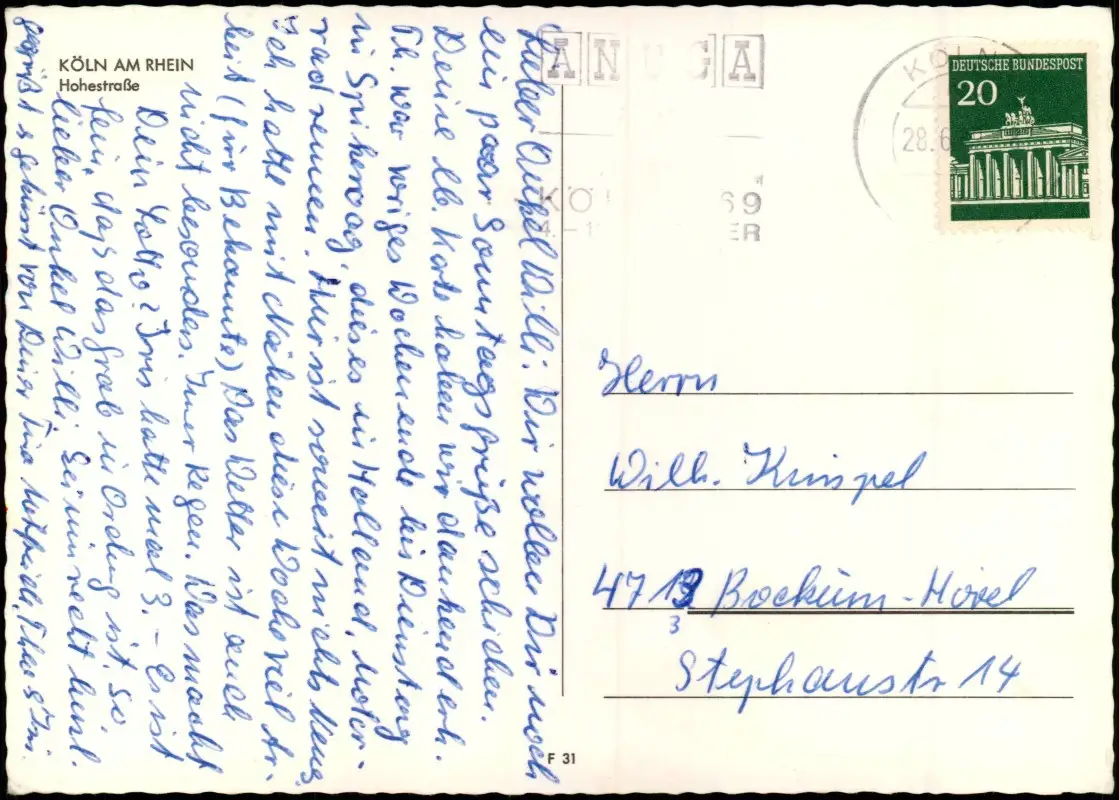 KÖLN AM RHEIN
Hohestraße
Lieber Onkel Willi! Wir wollen Dir noch
ein paar Sonntagsgrüße schicken.
Deine lb. Karte haben wir dankend erh.
Th. war voriges Wochenende bis Dienstag
in Spikeroog, dieses in Holland, Motor-
radrennen. Hier ist soweit nichts Neues
Ich hatte mit Nähen diese Woche viel Ar-
beit (für Bekannte) Das Wetter ist auch
nicht besonders. Imer Regen. Was macht
Dein Lotto? Iris hatte mal 3. – Es ist
fein, dass das Grab in Ordnung ist. So,
lieber Onkel Willi. Sei nun recht herzl.
gegrüßt & geküsst von Deiner Tina Thea &
ANUGA
KÖLN 69
KÖLN
28.6
DEUTSCHE BUNDESPOST
20
Herrn
Wilh. Krinpel
4713 Bockum-Hövel
3
Stephanstr 14
F 31